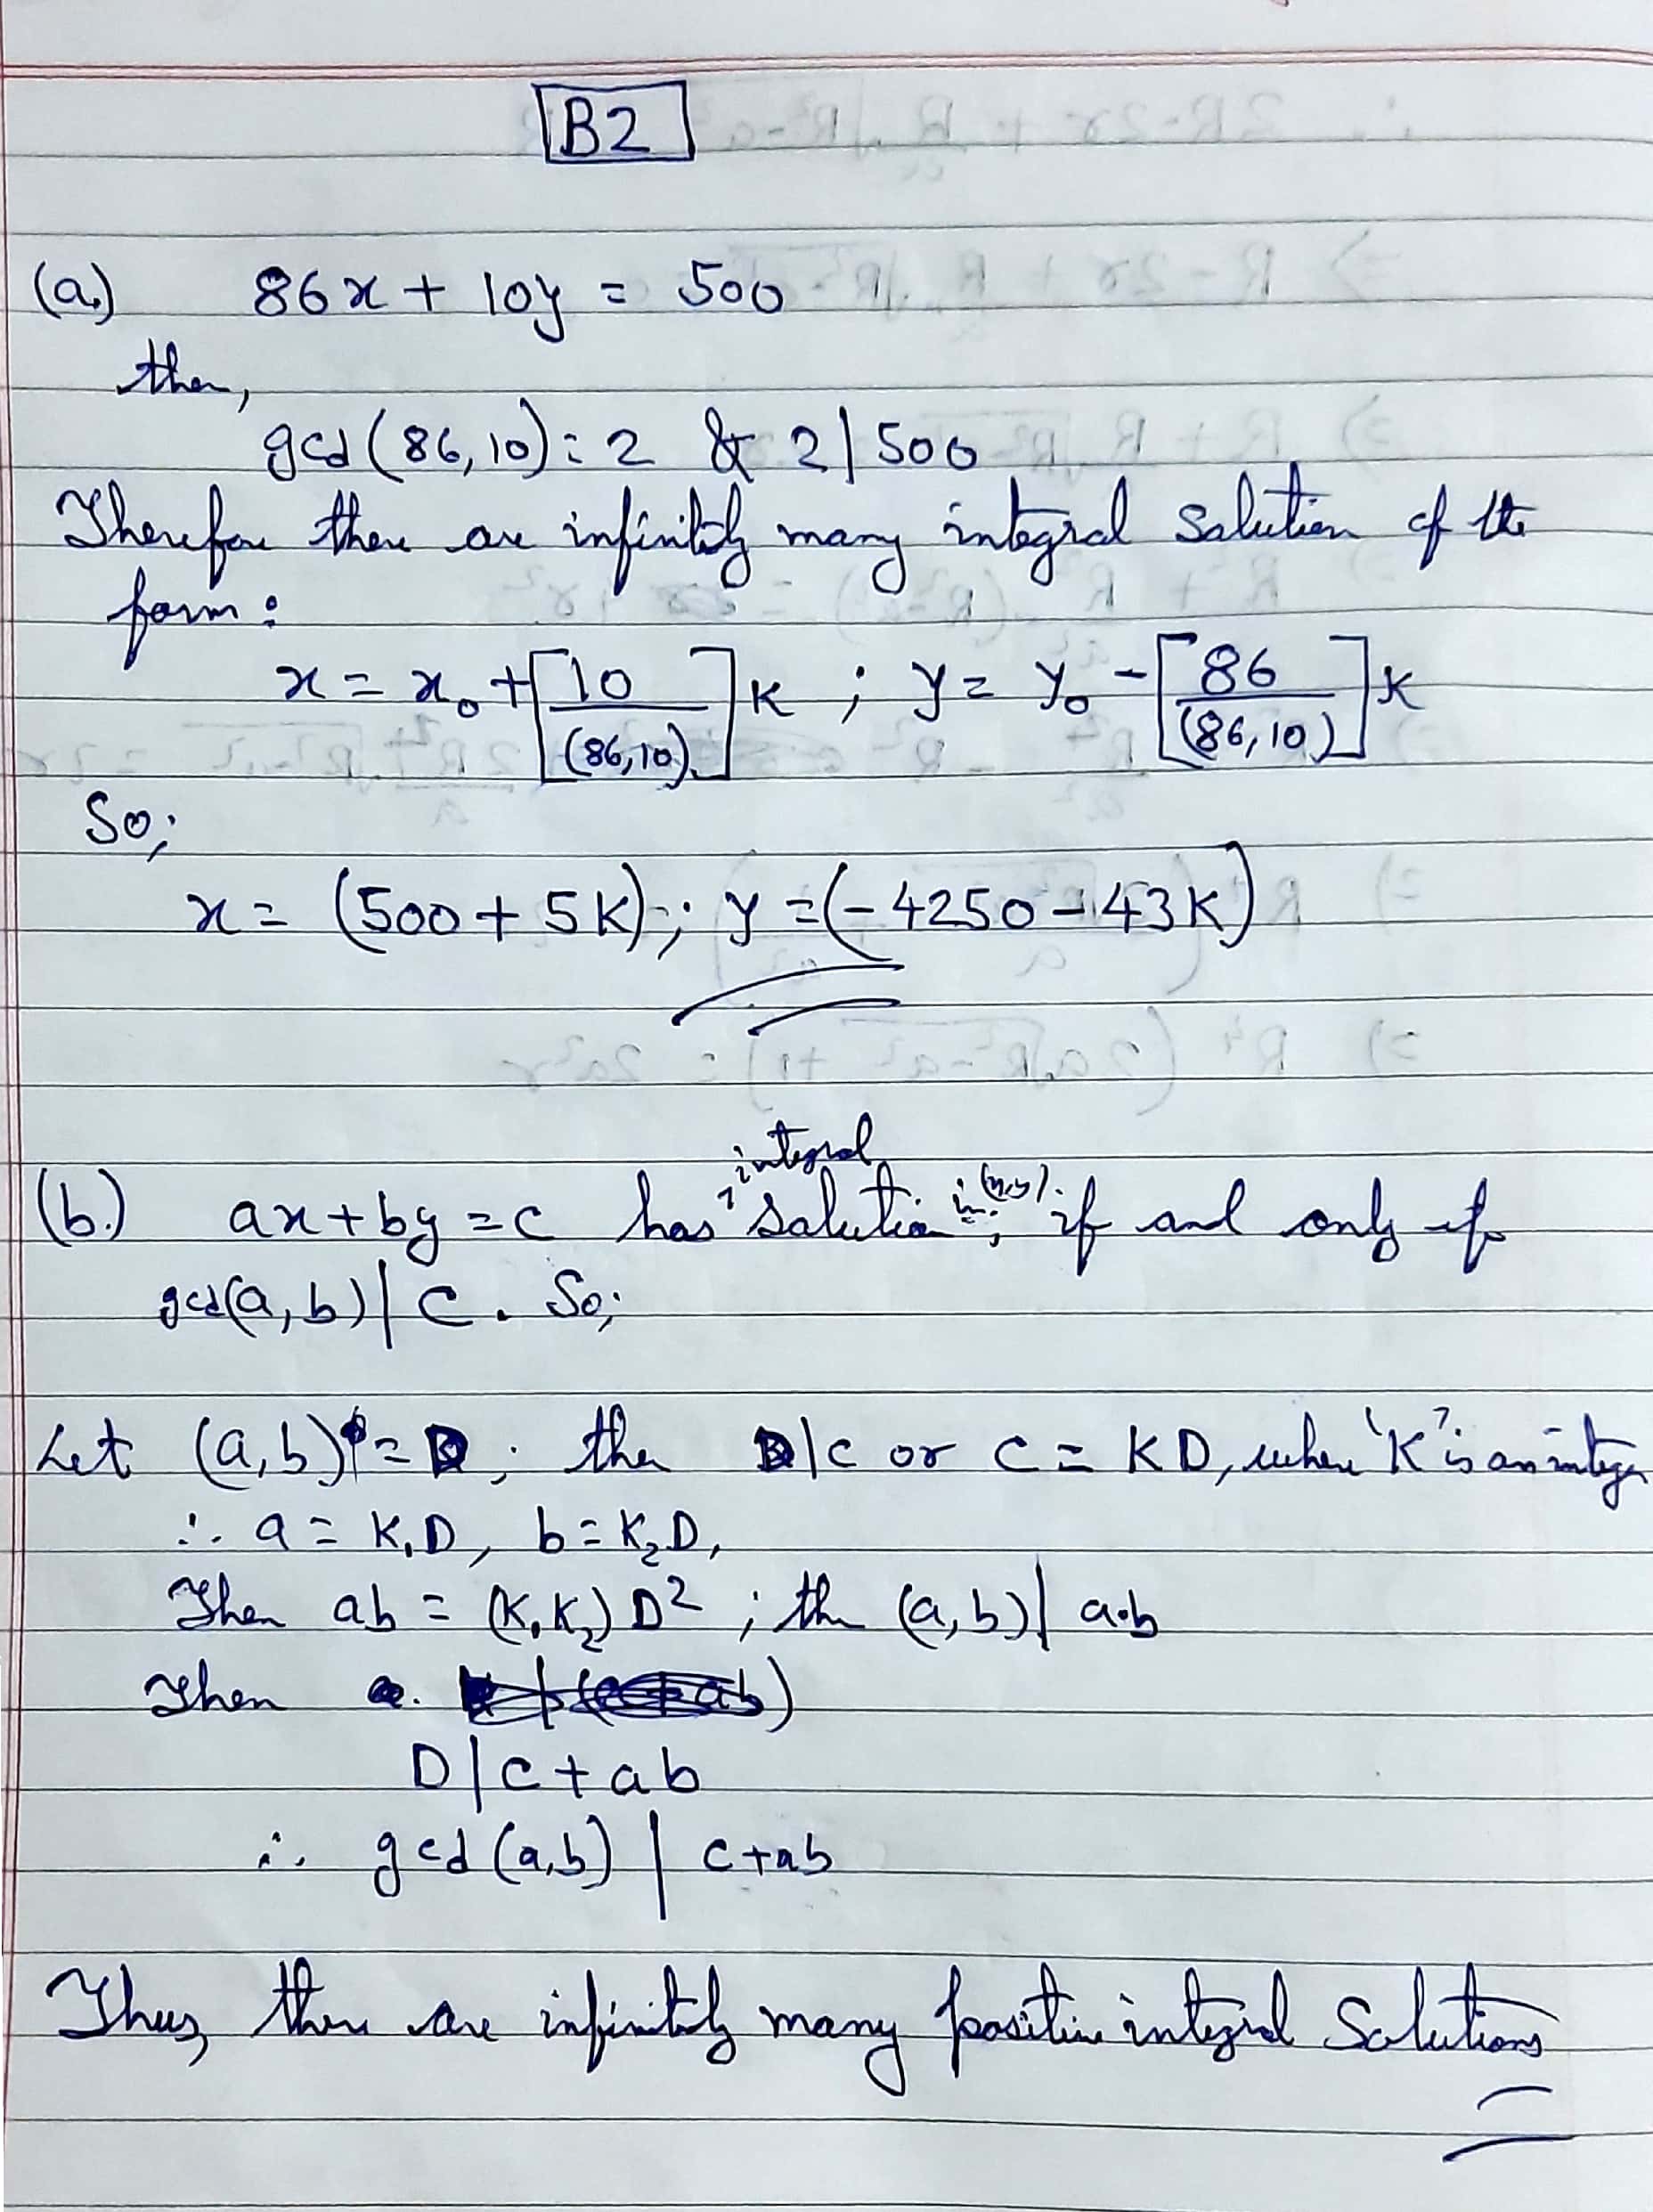 B2
(a.) 86x + 10y = 500
then,
gcd(86,10) = 2 & 2|500
Therefore there are infinitely many integral solution of the
form:
x = x₀ + [10/(86,10)]K ; y = y₀ - [86/(86,10)]K
So;
x = (500 + 5K) ; y = (-4250 - 43K)
integral
(b.) ax + by = c has solution in (x,y), if and only if
gcd(a,b) | c. So;
Let (a,b) = D; then D|c or c = KD, where 'K' is an integer
∴ a = K₁D, b = K₂D,
Then ab = (K₁K₂) D² ; then (a,b) | a.b
Then
D | c + ab
∴ gcd (a,b) | c+ab
Thus, there are infinitely many positive integral Solutions